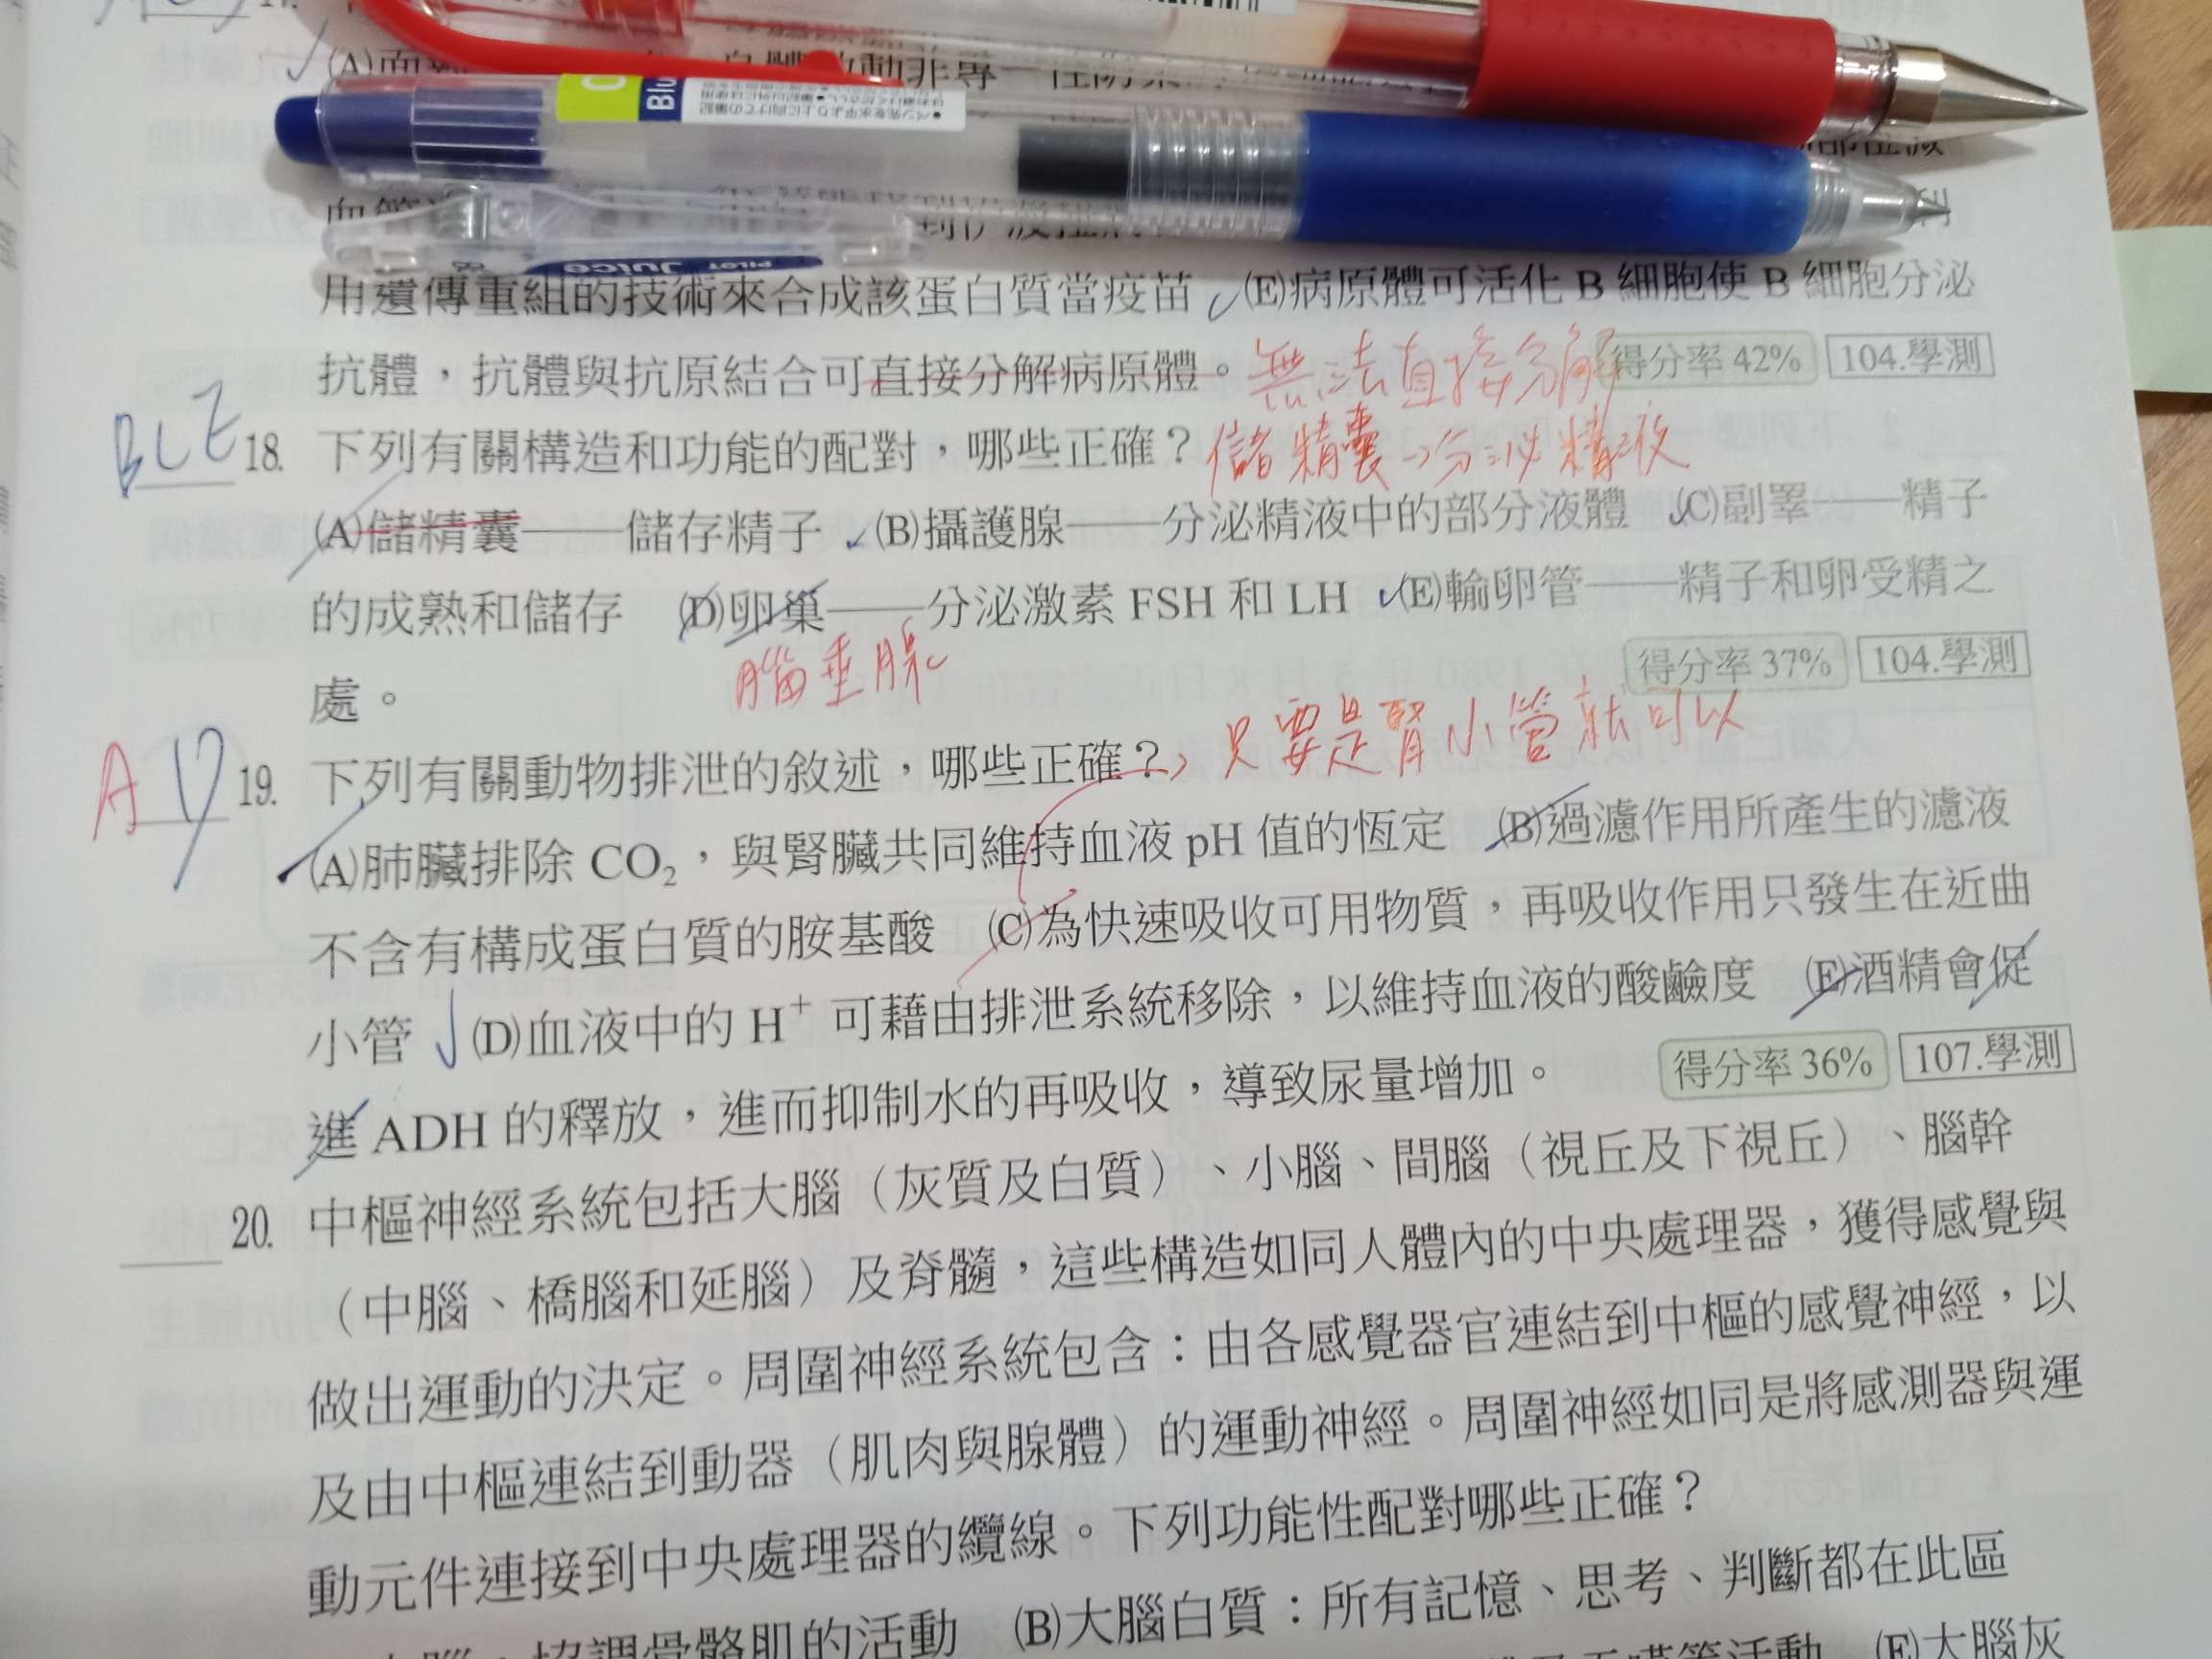 17.
(A)面
Blu
PILOT Juice
血管
用遺傳重組的技術來合成該蛋白質當疫苗 (E)病原體可活化 B 細胞使 B 細胞分泌
抗體，抗體與抗原結合可直接分解病原體。 無法直接分解 得分率 42% 104.學測
BCE 18. 下列有關構造和功能的配對，哪些正確？ 儲精囊→分泌精液
(A)儲精囊——儲存精子 (B)攝護腺——分泌精液中的部分液體 (C)副睪——精子
的成熟和儲存 (D)卵巢——分泌激素 FSH 和 LH (E)輸卵管——精子和卵受精之
腦垂腺
處。 得分率 37% 104.學測
只要是腎小管就可以
AD 19. 下列有關動物排泄的敘述，哪些正確？
(A)肺臟排除 CO₂，與腎臟共同維持血液 pH 值的恆定 (B)過濾作用所產生的濾液
不含有構成蛋白質的胺基酸 (C)為快速吸收可用物質，再吸收作用只發生在近曲
小管 (D)血液中的 H⁺ 可藉由排泄系統移除，以維持血液的酸鹼度 (E)酒精會促
進 ADH 的釋放，進而抑制水的再吸收，導致尿量增加。 得分率 36% 107.學測
20. 中樞神經系統包括大腦（灰質及白質）、小腦、間腦（視丘及下視丘）、腦幹
（中腦、橋腦和延腦）及脊髓，這些構造如同人體內的中央處理器，獲得感覺與
做出運動的決定。周圍神經系統包含：由各感覺器官連結到中樞的感覺神經，以
及由中樞連結到動器（肌肉與腺體）的運動神經。周圍神經如同是將感測器與運
動元件連接到中央處理器的纜線。下列功能性配對哪些正確？
腦：協調骨骼肌的活動 (B)大腦白質：所有記憶、思考、判斷都在此區
等活動 (E)大腦灰